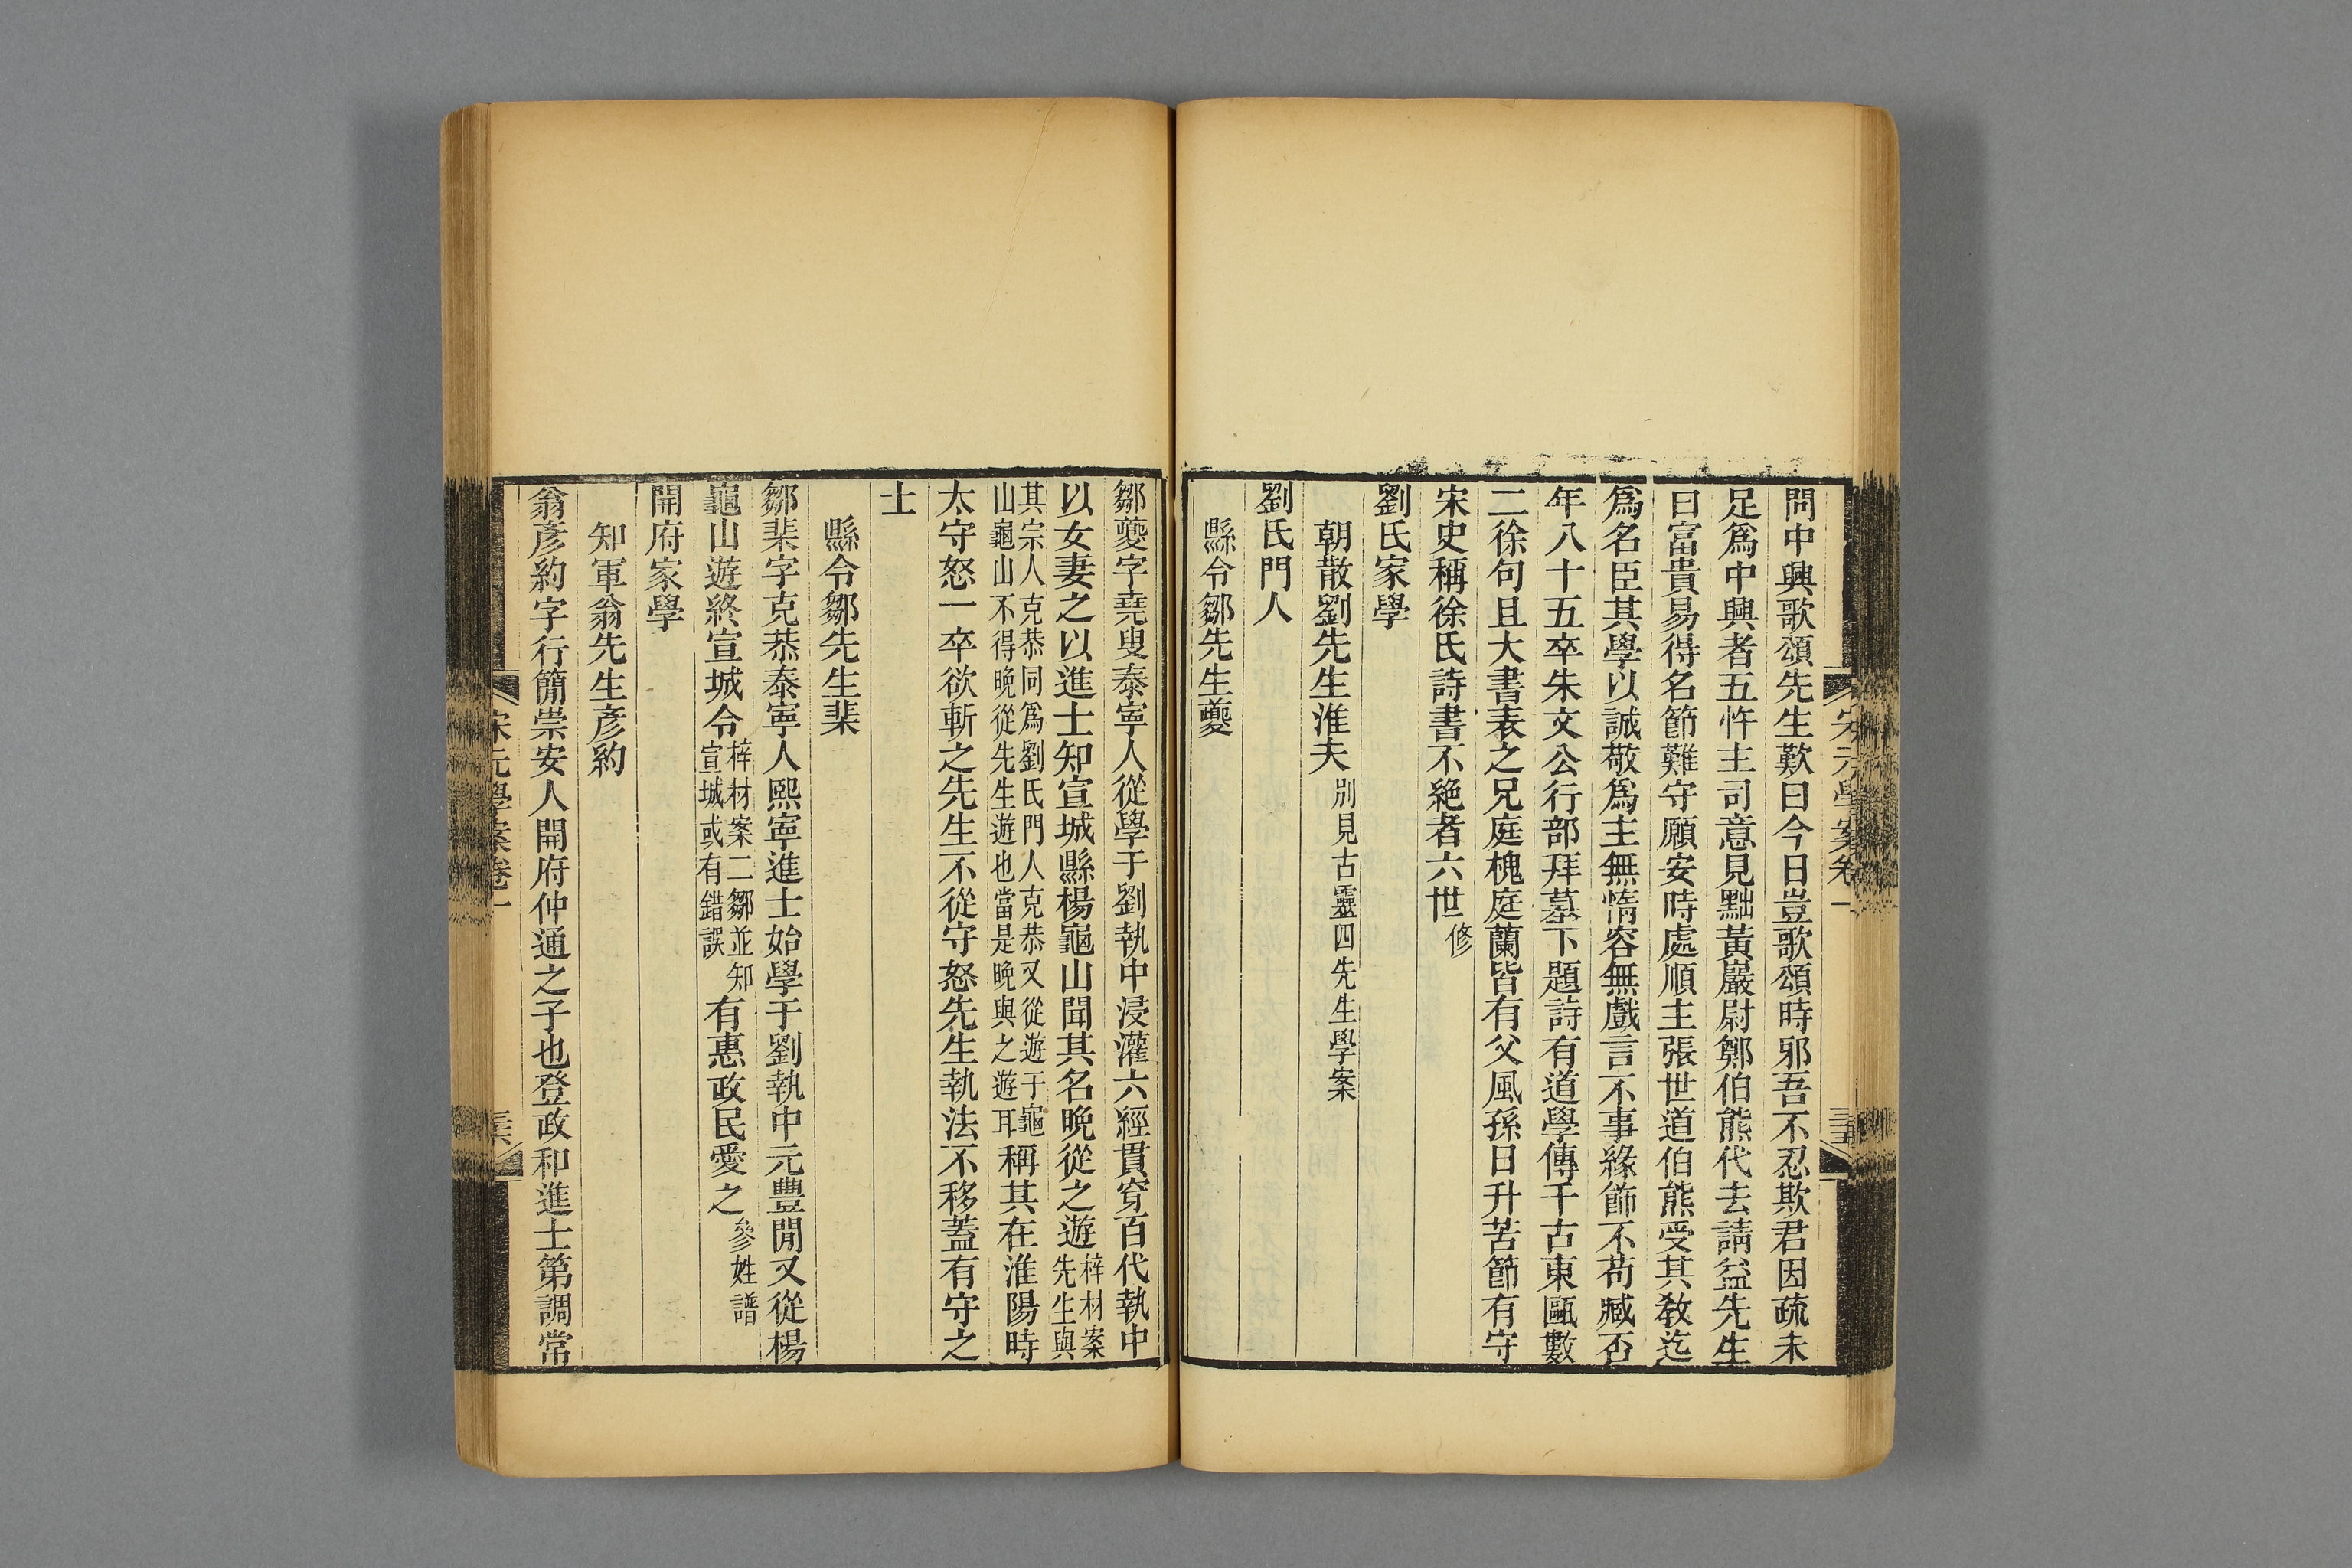 問中興歌頌先生歎曰今日豈歌頌時邪吾不忍欺君因疏未
足爲中興者五忤主司意見黜黃巖尉鄭伯熊代去請益先生
曰富貴易得名節難守願安時處順主張世道伯熊受其敎迄
爲名臣其學以誠敬爲主無惰容無戲言不事緣飾不苟臧否
年八十五卒朱文公行部拜墓下題詩有道學傳千古東甌數
二徐句且大書表之兄庭槐庭蘭皆有父風孫日升苦節有守
宋史稱徐氏詩書不絕者六世修
劉氏家學
朝散劉先生淮夫別見古靈四先生學案
劉氏門人
縣令鄒先生夔
鄒夔字堯叟泰寧人從學于劉執中浸灌六經貫穿百代執中
以女妻之以進士知宣城縣楊龜山聞其名晚從之遊梓材案先生與
其宗人克恭同爲劉氏門人克恭又從遊于龜山龜山不得晚從先生遊也當是晚與之遊耳稱其在淮陽時
太守怒一卒欲斬之先生不從守怒先生執法不移蓋有守之
士
縣令鄒先生棐
鄒棐字克恭泰寧人熙寧進士始學于劉執中元豐閒又從楊
龜山遊終宣城令梓材案二鄒並知宣城或有錯誤有惠政民愛之參姓譜
開府家學
知軍翁先生彥約
翁彥約字行簡崇安人開府仲通之子也登政和進士第調常
宋元學案卷一